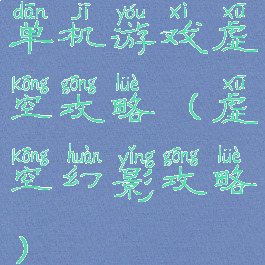 dān jī yóu xì xū
单机游戏虚
kōng gōng lüè xū
空攻略(虚
kōng huàn yǐng gōng lüè
空幻影攻略
)